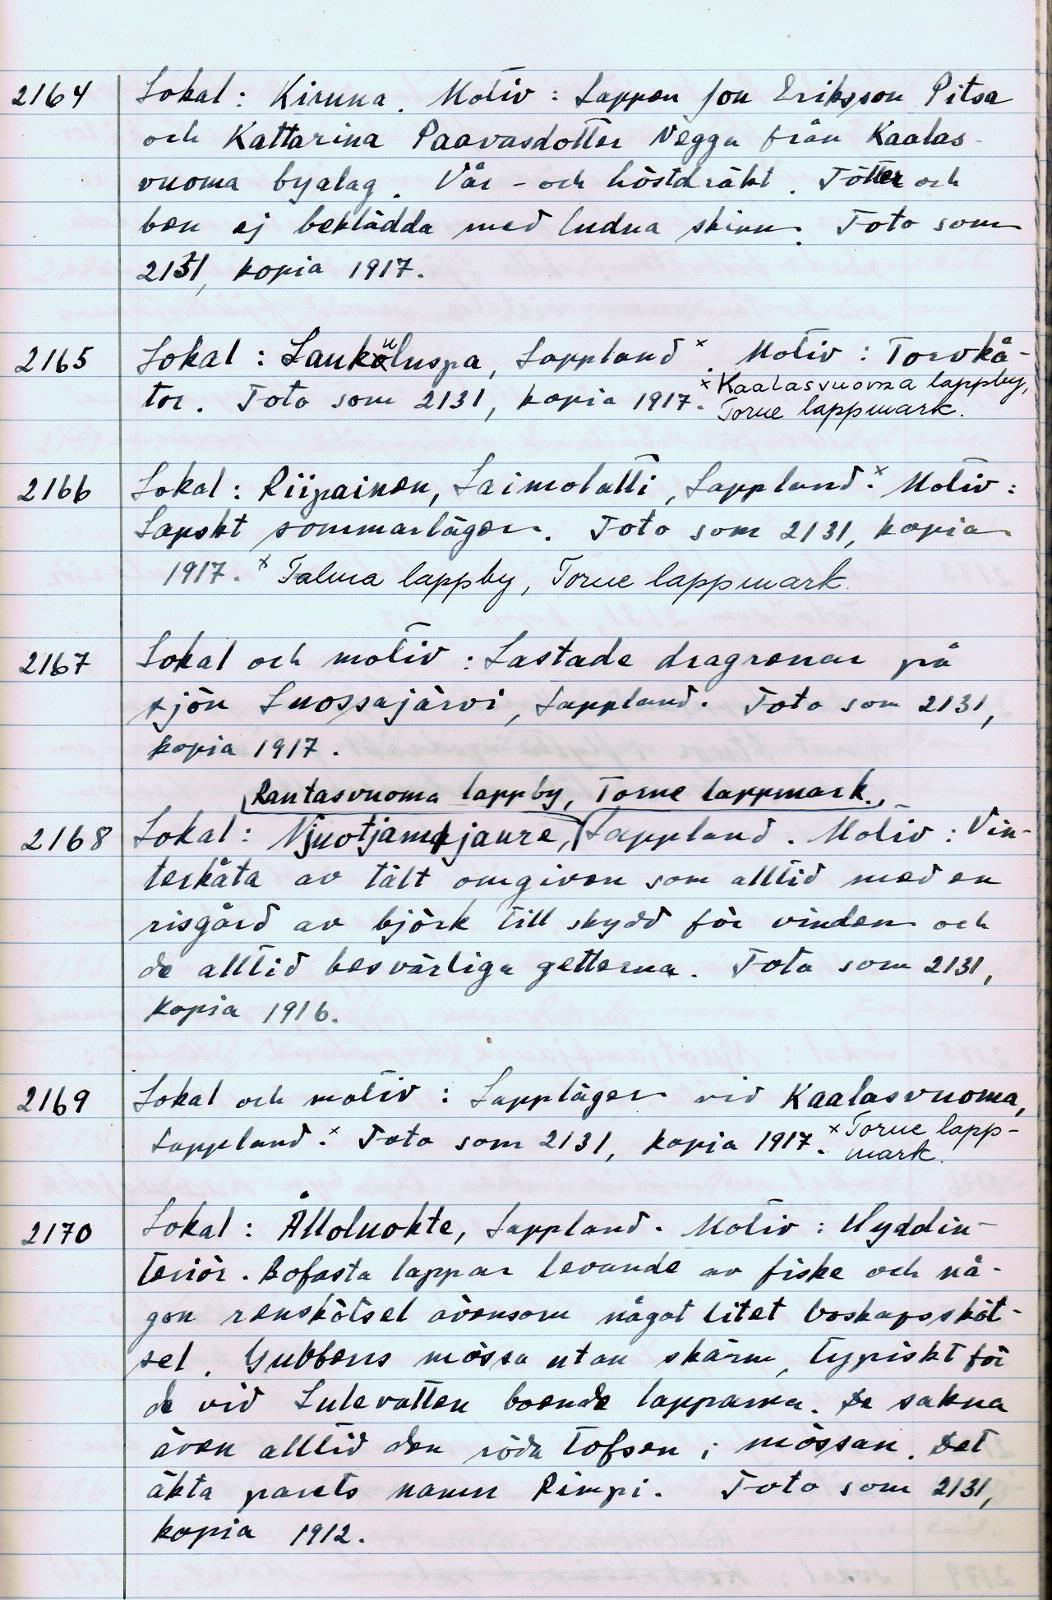 2164 Lokal: Kiruna. Motiv: Lappen Jon Eriksson Pitsa
och Kattarina Paavasdotter Vegga från Kaalas-
vuoma byalag. Vår- och höstdräkt. Fötter och
ben ej beklädda med ludna skinn. Foto som
2131, kopia 1917.
2165 Lokal: Laukoluspa, Lappland x. Motiv: Torvkå-
tor. Foto som 2131, kopia 1917. x Kaalasvuoma lappby,
Torne lappmark.
2166 Lokal: Riipainen, Laimolatti, Lappland. x Motiv:
Lapskt sommarläger. Foto som 2131, kopia
1917. x Talma lappby, Torne lappmark.
2167 Lokal och motiv: Lastade dragrenar på
sjön Luossajärvi, Lappland. Foto som 2131,
kopia 1917.
Rautasvuoma lappby, Torne lappmark.,
2168 Lokal: Njuotjamjaure, Lappland. Motiv: Vin-
terkåta av tält omgiven som alltid med en
risgård av björk till skydd för vinden och
de alltid besvärliga getterna. Foto som 2131,
kopia 1916.
2169 Lokal och motiv: Lappläger vid Kaalasvuoma,
Lappland. x Foto som 2131, kopia 1917. x Torne lapp-
mark.
2170 Lokal: Ålloluokte, Lappland. Motiv: Hyddin-
teriör. Bofasta lappar levande av fiske och nå-
gon renskötsel ävensom något litet boskapssköt-
sel. Gubbens mössa utan skärm, typiskt för
de vid Lulevatten boende lapparna. De sakna
även alltid den röda tofsen i mössan. Det
äkta parets namn Rimpi. Foto som 2131,
kopia 1912.